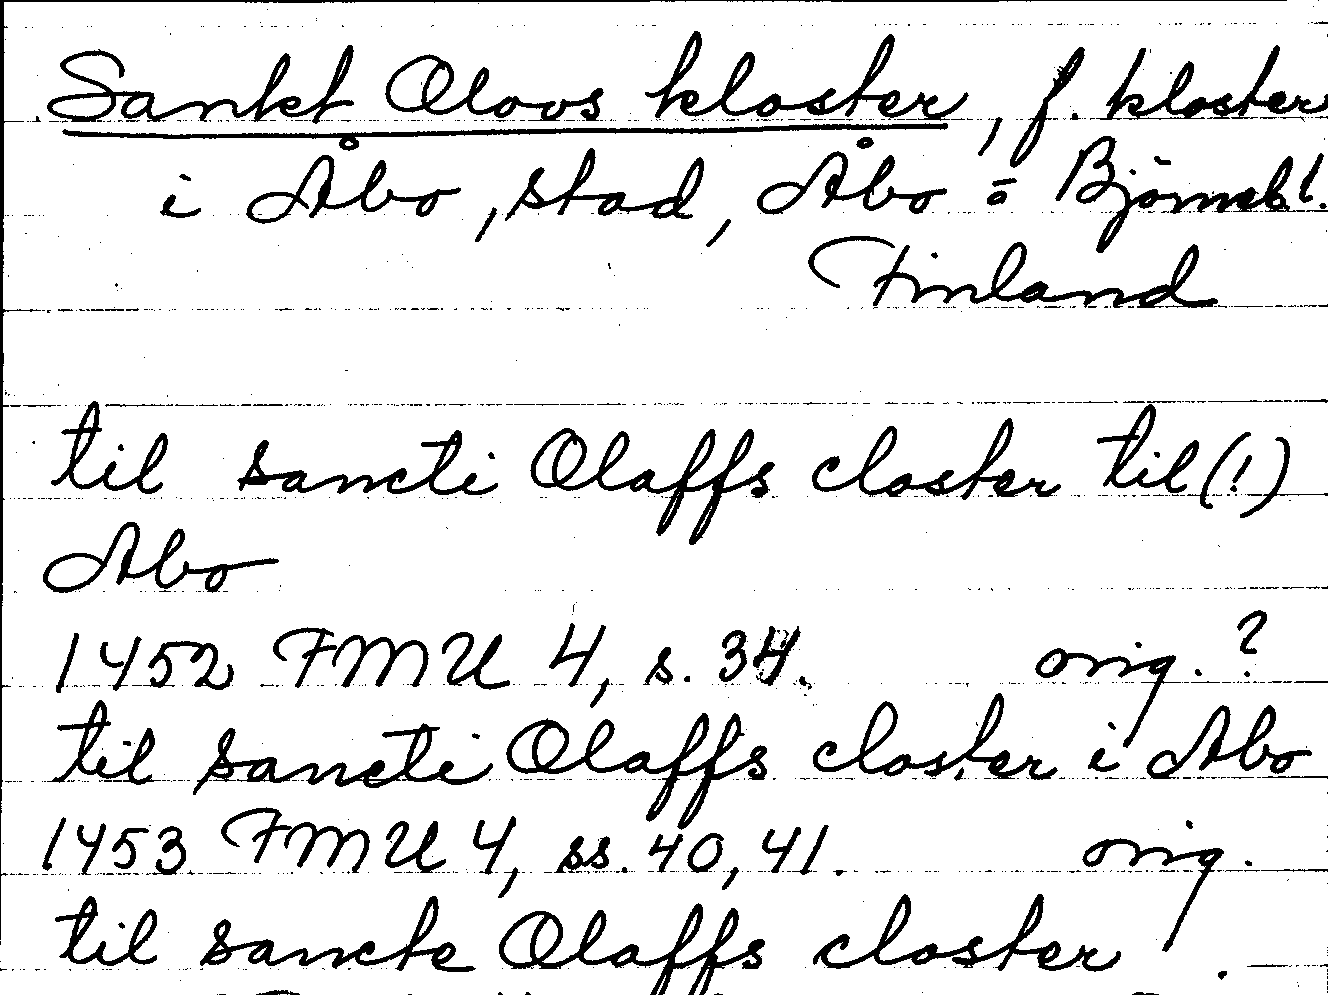 Sankt Olovs kloster, f. kloster
i Åbo, stad, Åbo o Björneb!.
Finland
til sancti Olaffs closter til (!)
Abo
1452 FMU 4, s. 34. orig.?
til sancti Olaffs closter i Abo
1453 FMU 4, ss. 40, 41. orig.
til sancte Olaffs closter